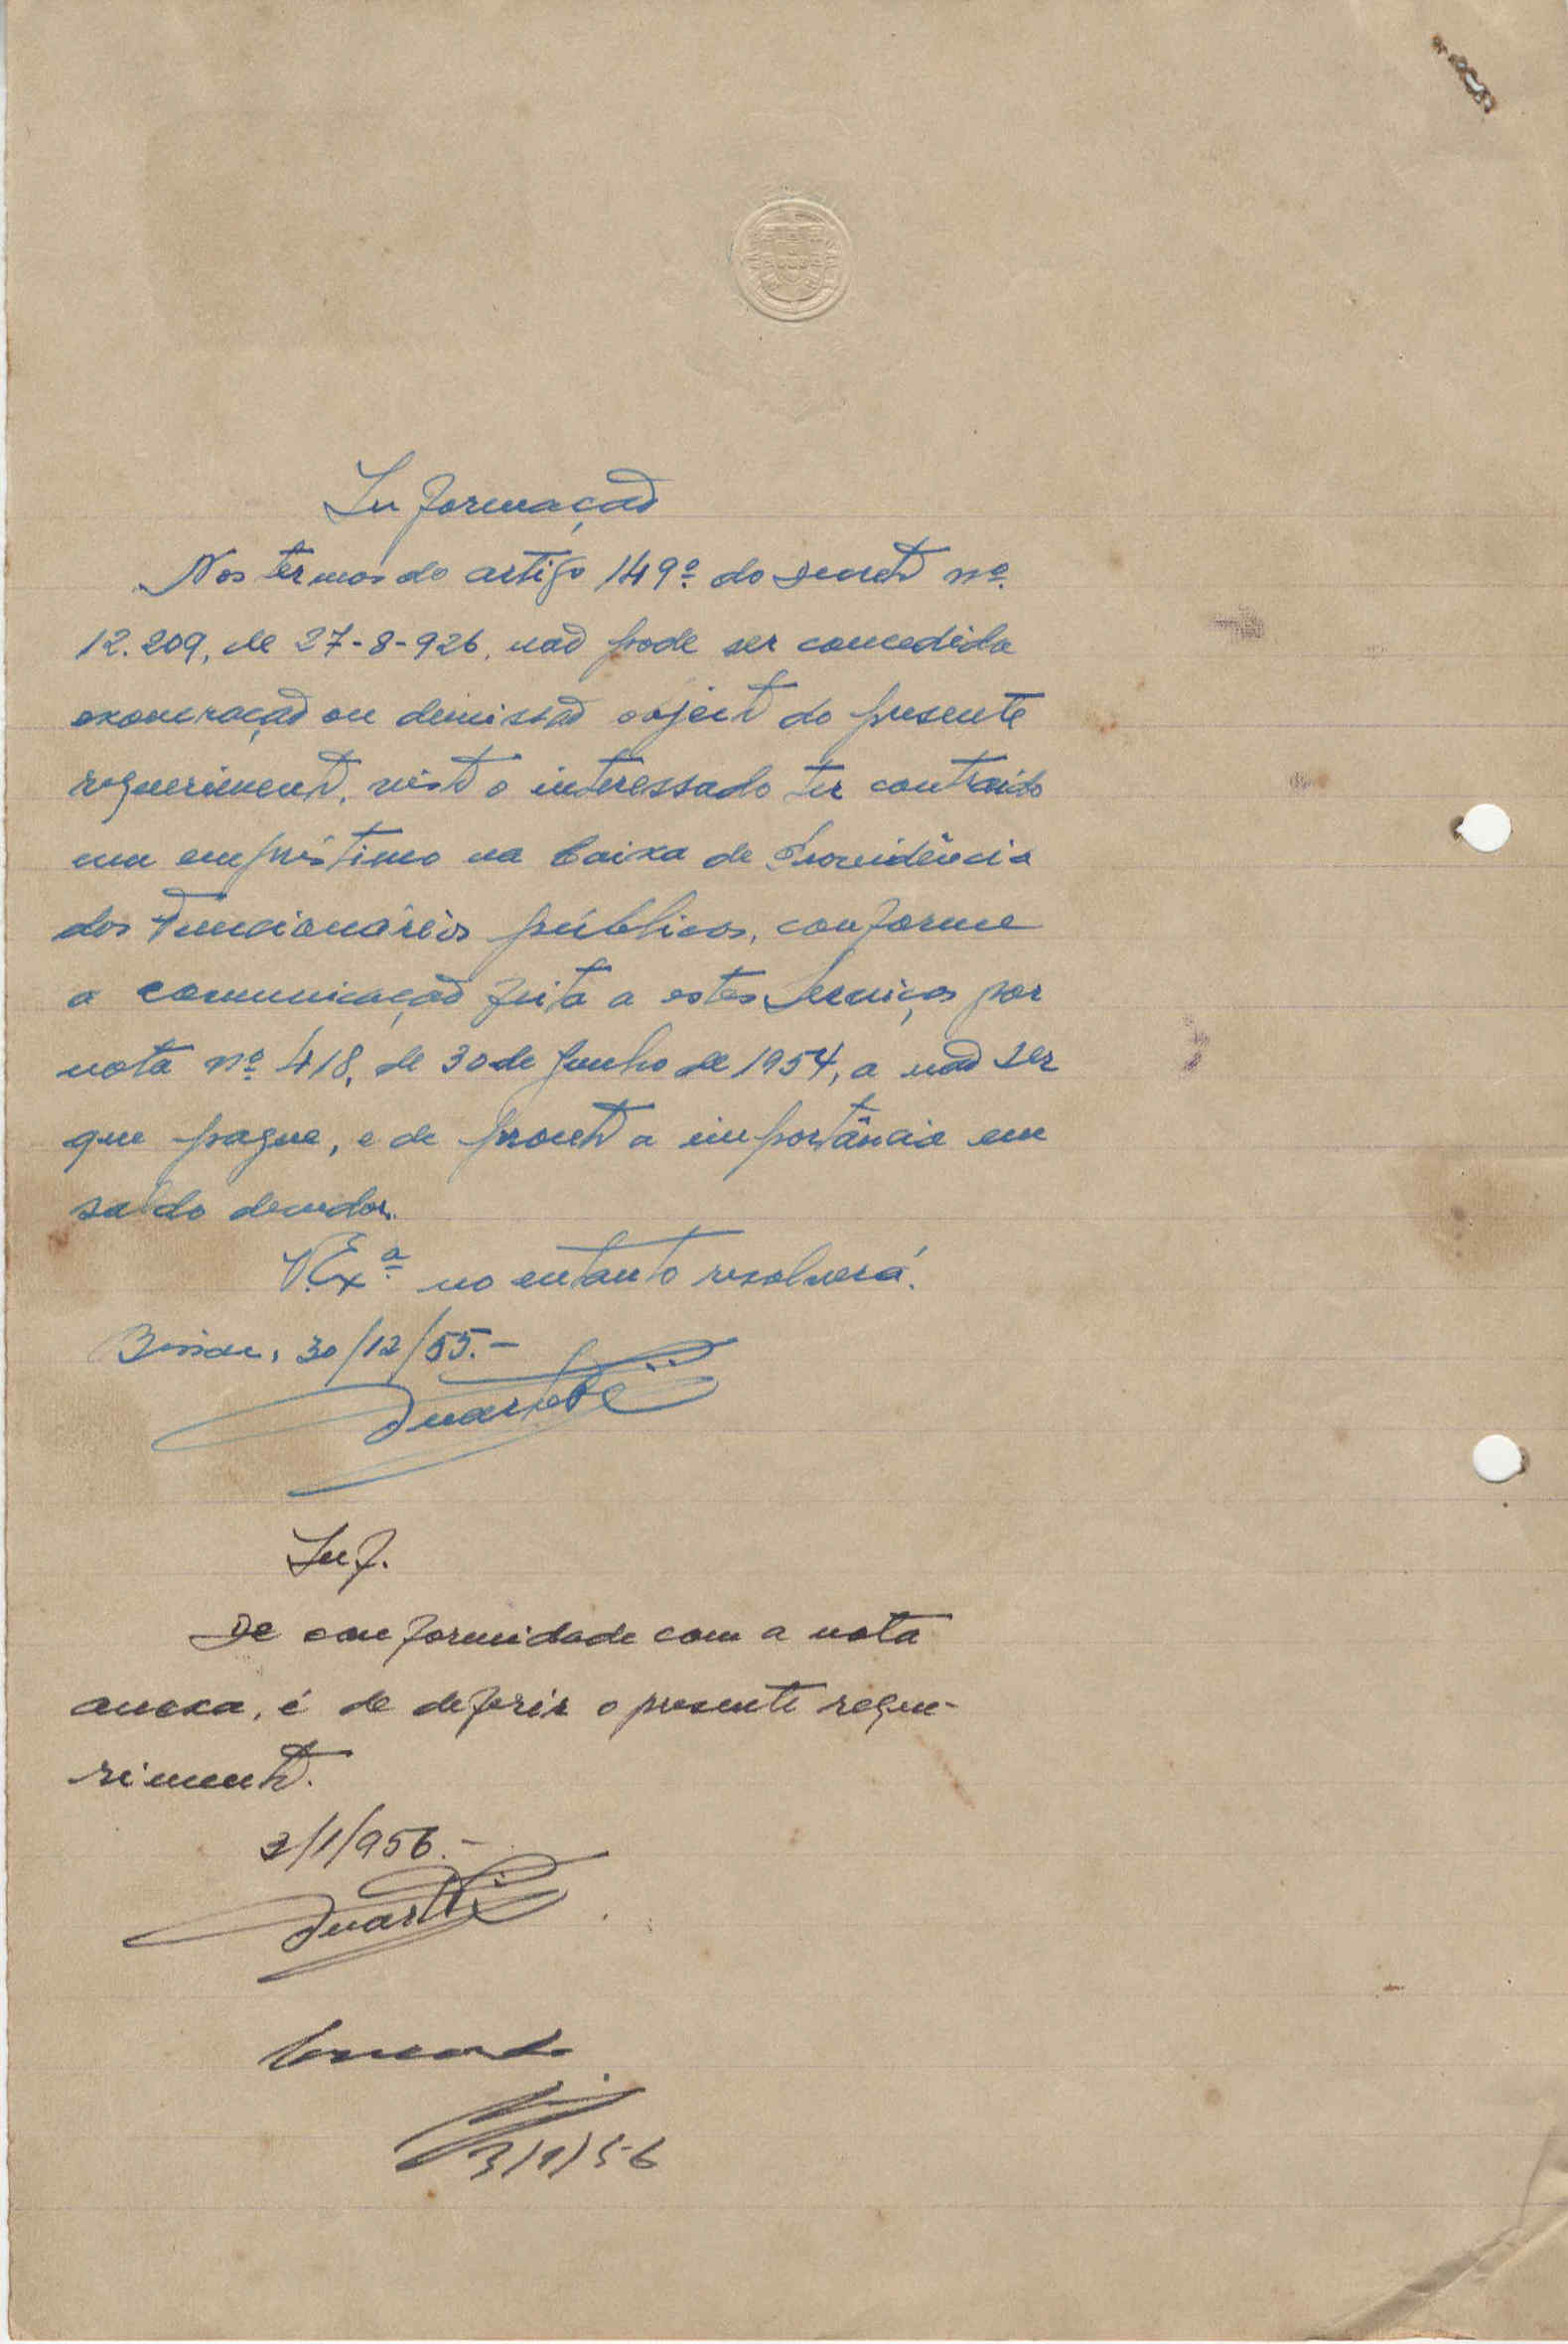 Informação
Nos termos do artigo 149º do Decreto nº
12.209, de 27-8-926, não pode ser concedida
exoneração ou demissão objecto do presente
requerimento, visto o interessado ter contraído
um empréstimo na Caixa de Previdência
dos Funcionários públicos, conforme
a comunicação feita a estes Serviços por
nota nº 418, de 30 de Junho de 1954, a não ser
que pague, e de pronto a importância em
saldo devedor.
V. Exª no entanto resolverá.
Bissau, 30/12/55.-
Duarte
Inf.
De conformidade com a nota
anexa, é de deferir o presente reque-
rimento.
3/1/956.-
Duarte
Concordo
3/1/56